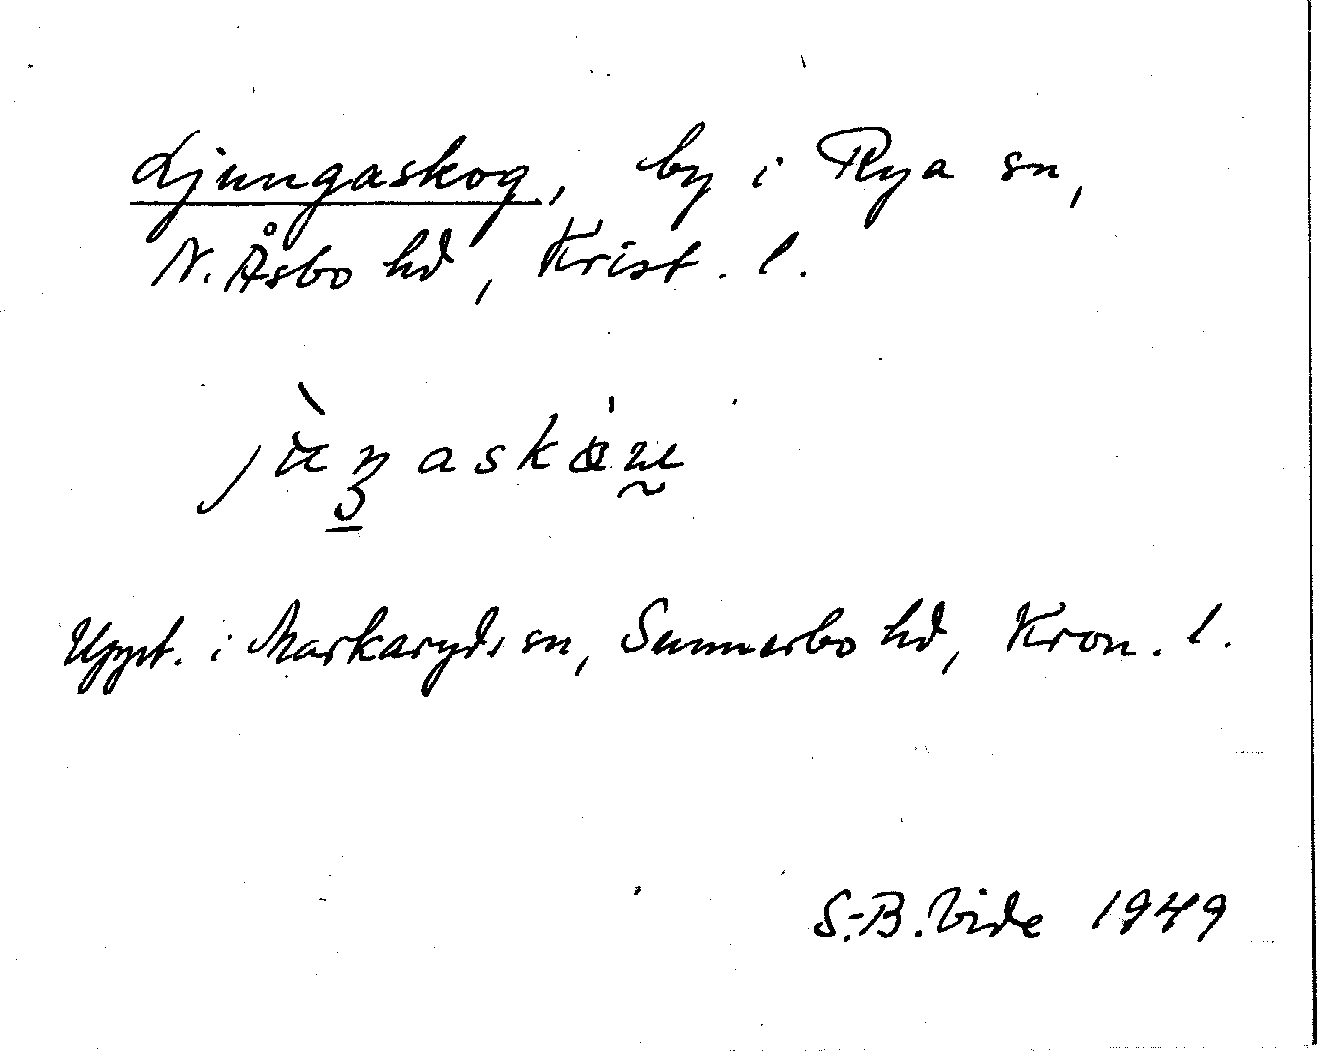 Ljungaskog, by i Rya sn,
N. Åsbo hd, Krist. l.
Uppt. i Markaryds sn, Sunnerbo hd, Kron. l.
S.-B. Vide 1949